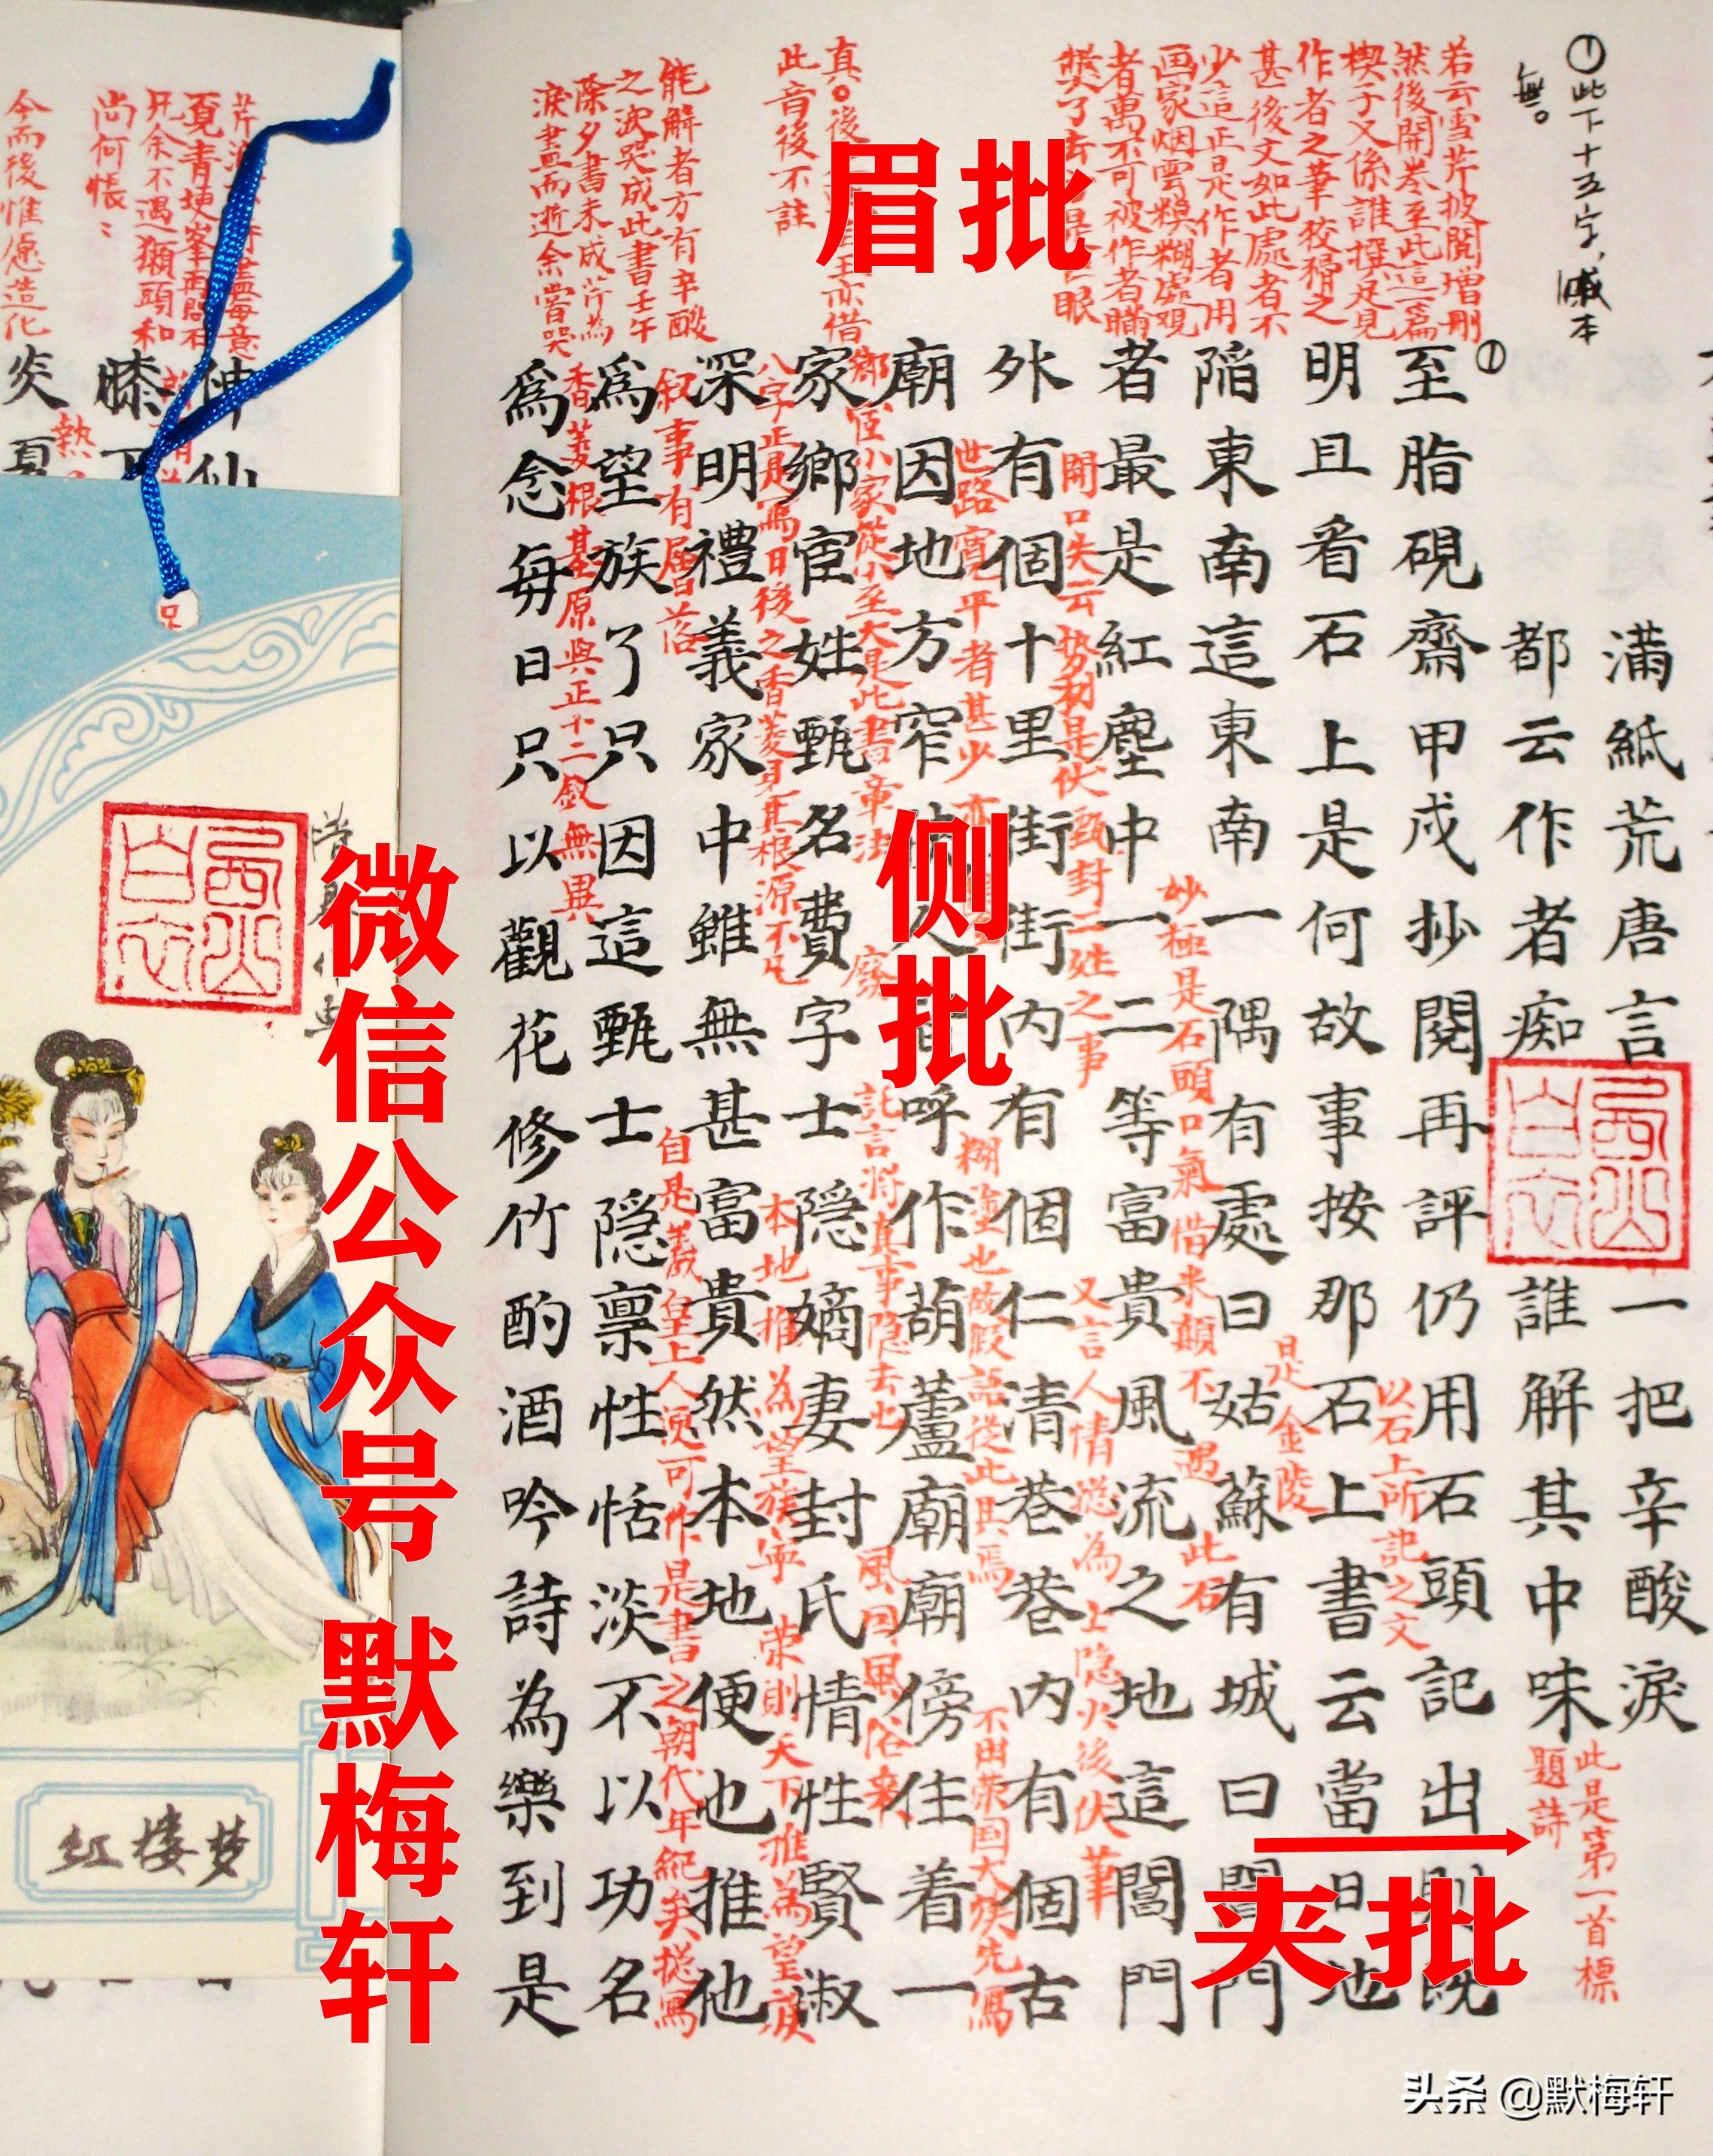 ①此下十五字，戚本
無。
若云雪芹披閱增刪
然後開卷至此這一篇
楔子又係誰撰足見
作者之筆狡猾之
甚後文如此處者不
少這正是作者用
画家烟雲糢糊處觀
者萬不可被作者瞞
眼
真。後
此音後不註
能解者方有辛酸
之淚哭成此書壬午
除夕書未成芹為
淚盡而逝余嘗哭
滿紙荒唐言一把辛酸淚
都云作者痴誰解其中味
此是第一首標
題詩
①
至脂硯齋甲戌抄閱再評仍用石頭記出
明且看石上是何故事按那石上書云當日
以石上所記之文
陷東南這東南一隅有處曰姑蘇有城曰
是金陵
妙極是石頭口氣借来顛不遇此石
者最是紅塵中一二等富貴風流之地這閶門
開口失云势利是伏甄封二姓之事
外有個十里街街內有個仁清巷巷内有個古
又言人情總為士隐火後伏筆
世路寬平者甚少
廟因地方窄作葫蘆廟廟傍住着一
糊塗也故假語從此具焉
家鄉宦姓甄名費字士隱嫡妻封氏情性賢淑
託言將真事隐去也
風因風俗来
深明禮義家中雖無甚富貴然本地便也推他
八字正是寫日後之香菱見其根源不凡
本地推為望族寧榮則天下推為望族
為望族了只因這甄士隱禀性恬淡不以功名
叙事有層落
自是羲皇上人便可作是書之朝代年紀矣總寫
為念每日只以觀花修竹酌酒吟詩為樂到是
香菱根基原與正十二釵無異
眉批
侧批
夹批
微信公众号 默梅轩
今而後惟愿造化
尚何悵：
红楼梦
头条 @默梅轩